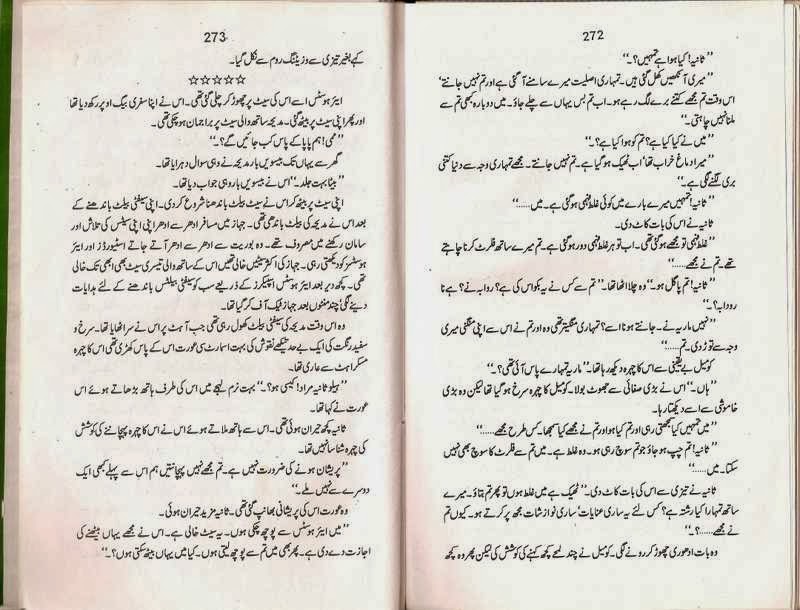 272
”ثانیہ! کیا ہوا ہے تمہیں؟۔“
”میری آنکھیں کھل گئی ہیں۔ تمہاری اصلیت میرے سامنے آ گئی ہے اور تم نہیں جانتے‘
اس وقت تم مجھے کتنے برے لگ رہے ہو۔ اب تم بس یہاں سے چلے جاؤ۔ میں دوبارہ کبھی تم سے
ملنا نہیں چاہتی۔“
”میں نے کیا کیا ہے؟ تم کو ہوا کیا ہے؟۔“
”میرا دماغ خراب تھا‘ اب ٹھیک ہو گیا ہے۔ تم نہیں جانتے۔ مجھے تمہاری وجہ سے دنیا کتنی
بری لگنے لگی ہے۔“
”ثانیہ! تمہیں میرے بارے میں کوئی غلط فہمی ہو گئی ہے۔ میں......“
ثانیہ نے اس کی بات کاٹ دی۔
”غلط فہمی تو مجھے ہو گئی تھی۔ اب تو ہر غلط فہمی دور ہو گئی ہے۔ تم میرے ساتھ فلرٹ کرنا چاہتے
تھے۔ تم نے مجھے......“
”ثانیہ! تم پاگل ہو۔“ وہ چلا اٹھا تھا۔ ”تم سے کس نے یہ بکواس کی ہے؟ روابہ نے؟ ہے نا
رودابہ؟۔“
”نہیں ماریہ نے۔ جانتے ہو نا اسے؟ تمہاری منگیتر تھی وہ اور تم نے اس سے اپنی منگنی میری
وجہ سے توڑ دی۔ تم......“
کومیل بے یقینی سے اس کا چہرہ دیکھ رہا تھا۔ ”ماریہ تمہارے پاس آئی تھی؟۔“
”ہاں۔“ اس نے بڑی صفائی سے جھوٹ بولا۔ کومیل کا چہرہ سرخ ہو گیا تھا لیکن وہ بڑی
خاموشی سے اسے دیکھتا رہا۔
”میں تمہیں کیا سمجھتی رہی اور تم کیا ہو اور تم نے مجھے کیا سمجھا۔ کس طرح مجھے......“
”ثانیہ! تم چپ ہو جاؤ جو تم سوچ رہی ہو۔ وہ غلط ہے۔ میں تم سے فلرٹ کا سوچ بھی نہیں
سکتا۔ میں......“
ثانیہ نے تیزی سے اس کی بات کاٹ دی۔ ”ٹھیک ہے میں غلط ہوں تو پھر تم بتاؤ۔ میرے
ساتھ تمہارا کیا رشتہ ہے؟ کس لئے یہ ساری عنایات‘ ساری نوازشات مجھ پر کرتے ہو۔ کیوں تم
نے مجھے......؟۔“
وہ بات ادھوری چھوڑ کر رونے لگی۔ کومیل نے چند لمحے کچھ کہنے کی کوشش کی لیکن پھر وہ کچھ
273
کہے بغیر تیزی سے وزیٹنگ روم سے نکل گیا۔
☆☆☆☆☆
ایئر ہوسٹس اسے اس کی سیٹ پر چھوڑ کر چلی گئی تھی۔ اس نے اپنا سفری بیگ اوپر رکھ دیا تھا
اور پھر اپنی سیٹ پر بیٹھ گئی۔ مدیحہ ساتھ والی سیٹ پر براجمان ہو چکی تھی۔
”ممی! ہم پاپا کے پاس کب جائیں گے؟۔“
گھر سے یہاں تک بیسویں بار مدیحہ نے وہی سوال دہرایا تھا۔
”بیٹا بہت جلد۔“ اس نے بیسویں بار وہی جواب دیا تھا۔
اپنی سیٹ پر بیٹھ کر اس نے سیفٹی بیلٹ باندھنا شروع کر دی۔ اپنی سیفٹی بیلٹ باندھنے کے
بعد اس نے مدیحہ کی بیلٹ باندھی تھی۔ جہاز میں مسافر ادھر سے ادھر اپنی اپنی سیٹس کی تلاش اور
سامان رکھنے میں مصروف تھے۔ وہ بوریت سے ادھر سے ادھر آتے جاتے اسٹیورڈز اور ایئر
ہوسٹسز کو دیکھتی رہی۔ جہاز کی اکثر سیٹیں خالی تھیں اس کے ساتھ والی تیسری سیٹ بھی ابھی تک خالی
تھی۔ کچھ دیر بعد ایئر ہوسٹس اسپیکرز کے ذریعے سب کو سیفٹی بیلٹس باندھنے کے لئے ہدایات
دینے لگی‘ چند منٹوں بعد جہاز ٹیک آف کر گیا تھا۔
وہ اس وقت مدیحہ کی سیفٹی بیلٹ کھول رہی تھی جب آہٹ پر اس نے سر اٹھایا تھا۔ سرخ و
سفید رنگت کی ایک بے حد تیکھے نقوش کی بہت اسمارٹ سی عورت اس کے پاس کھڑی تھی اس کا چہرہ
مسکراہٹ سے عاری تھا۔
”ہیلو ثانیہ مراد! کیسی ہو؟۔“ بہت نرم لہجے میں اس کی طرف ہاتھ بڑھاتے ہوئے اس
عورت نے کہا تھا۔
ثانیہ کچھ حیران ہوئی تھی۔ اس سے ہاتھ ملاتے ہوئے اس نے اس کا چہرہ پہچاننے کی کوشش
کی چہرہ شناسا نہیں تھا۔
”پریشان ہونے کی ضرورت نہیں ہے۔ تم مجھے نہیں پہچانتیں ہم اس سے پہلے کبھی ایک
دوسرے سے نہیں ملے۔“
وہ عورت اس کی پریشانی بھانپ گئی تھی۔ ثانیہ مزید حیران ہوئی۔
”میں ایئر ہوسٹس سے پوچھ چکی ہوں۔ یہ سیٹ خالی ہے۔ اس نے مجھے یہاں بیٹھنے کی
اجازت دے دی ہے۔ پھر بھی میں تم سے پوچھ لیتی ہوں۔ کیا میں یہاں بیٹھ سکتی ہوں؟۔“